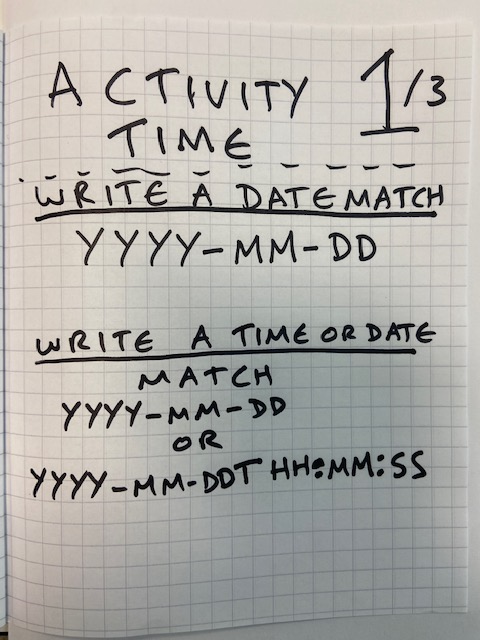 ACTIVITY 1/3
TIME
WRITE A DATE MATCH
YYYY-MM-DD
WRITE A TIME OR DATE
MATCH
YYYY-MM-DD
OR
YYYY-MM-DDT HH:MM:SS